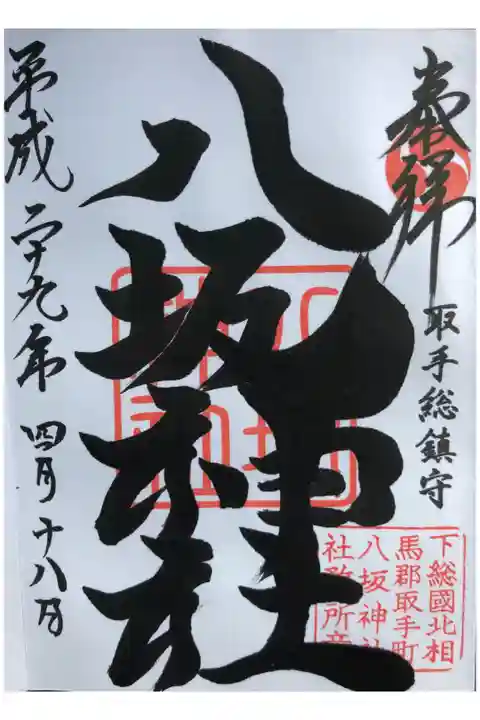 奉拝
取手総鎮守
八坂神社
平成二十九年 四月十八日
下総國北相
馬郡取手町
八坂神社
社務所